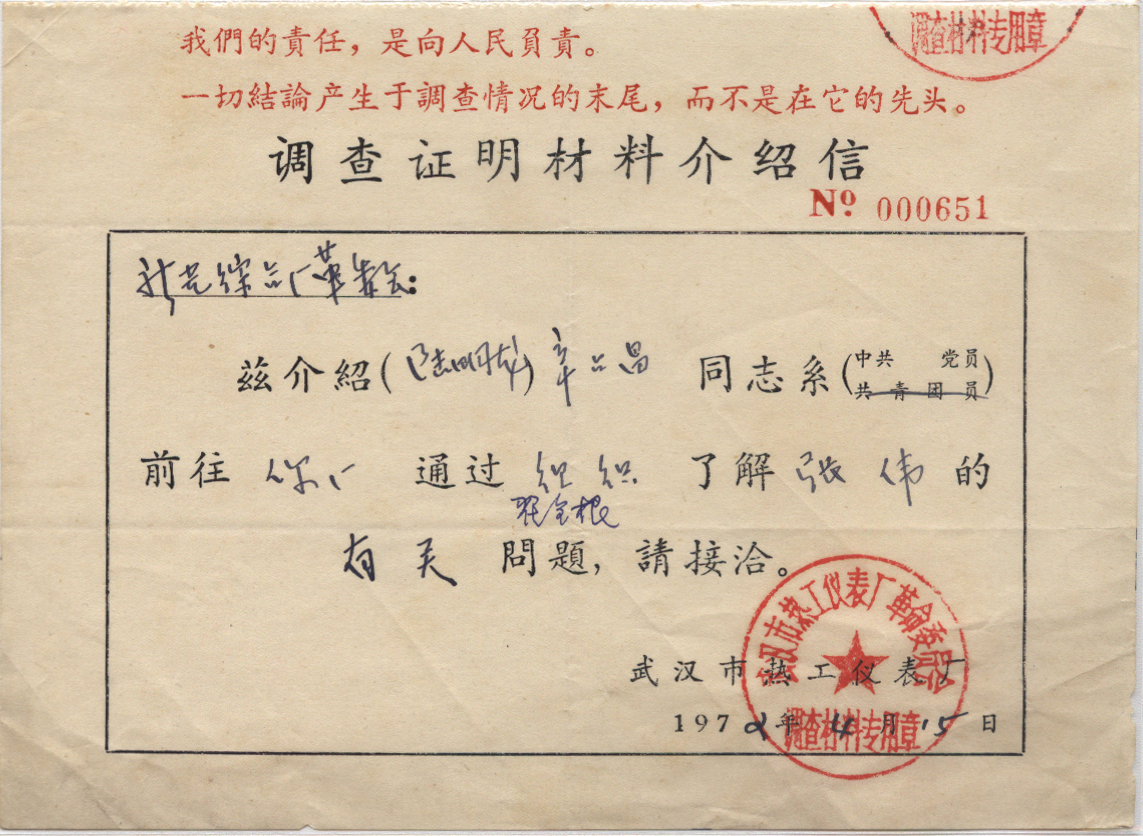 调查材料专用章
我們的責任，是向人民負責。
一切結論产生于調查情况的末尾，而不是在它的先头。
调查证明材料介绍信
№ 000651
综合厂革委会：
茲介紹（陆明发）章品昌 同志系（中共 党员
共青团员）
前往 你厂 通过 组织 了解 张伟 的
全根
有关 問題，請接洽。
武汉市热工仪表厂革命委员会
武汉市热工仪表厂
1972年4月15日
调查材料专用章